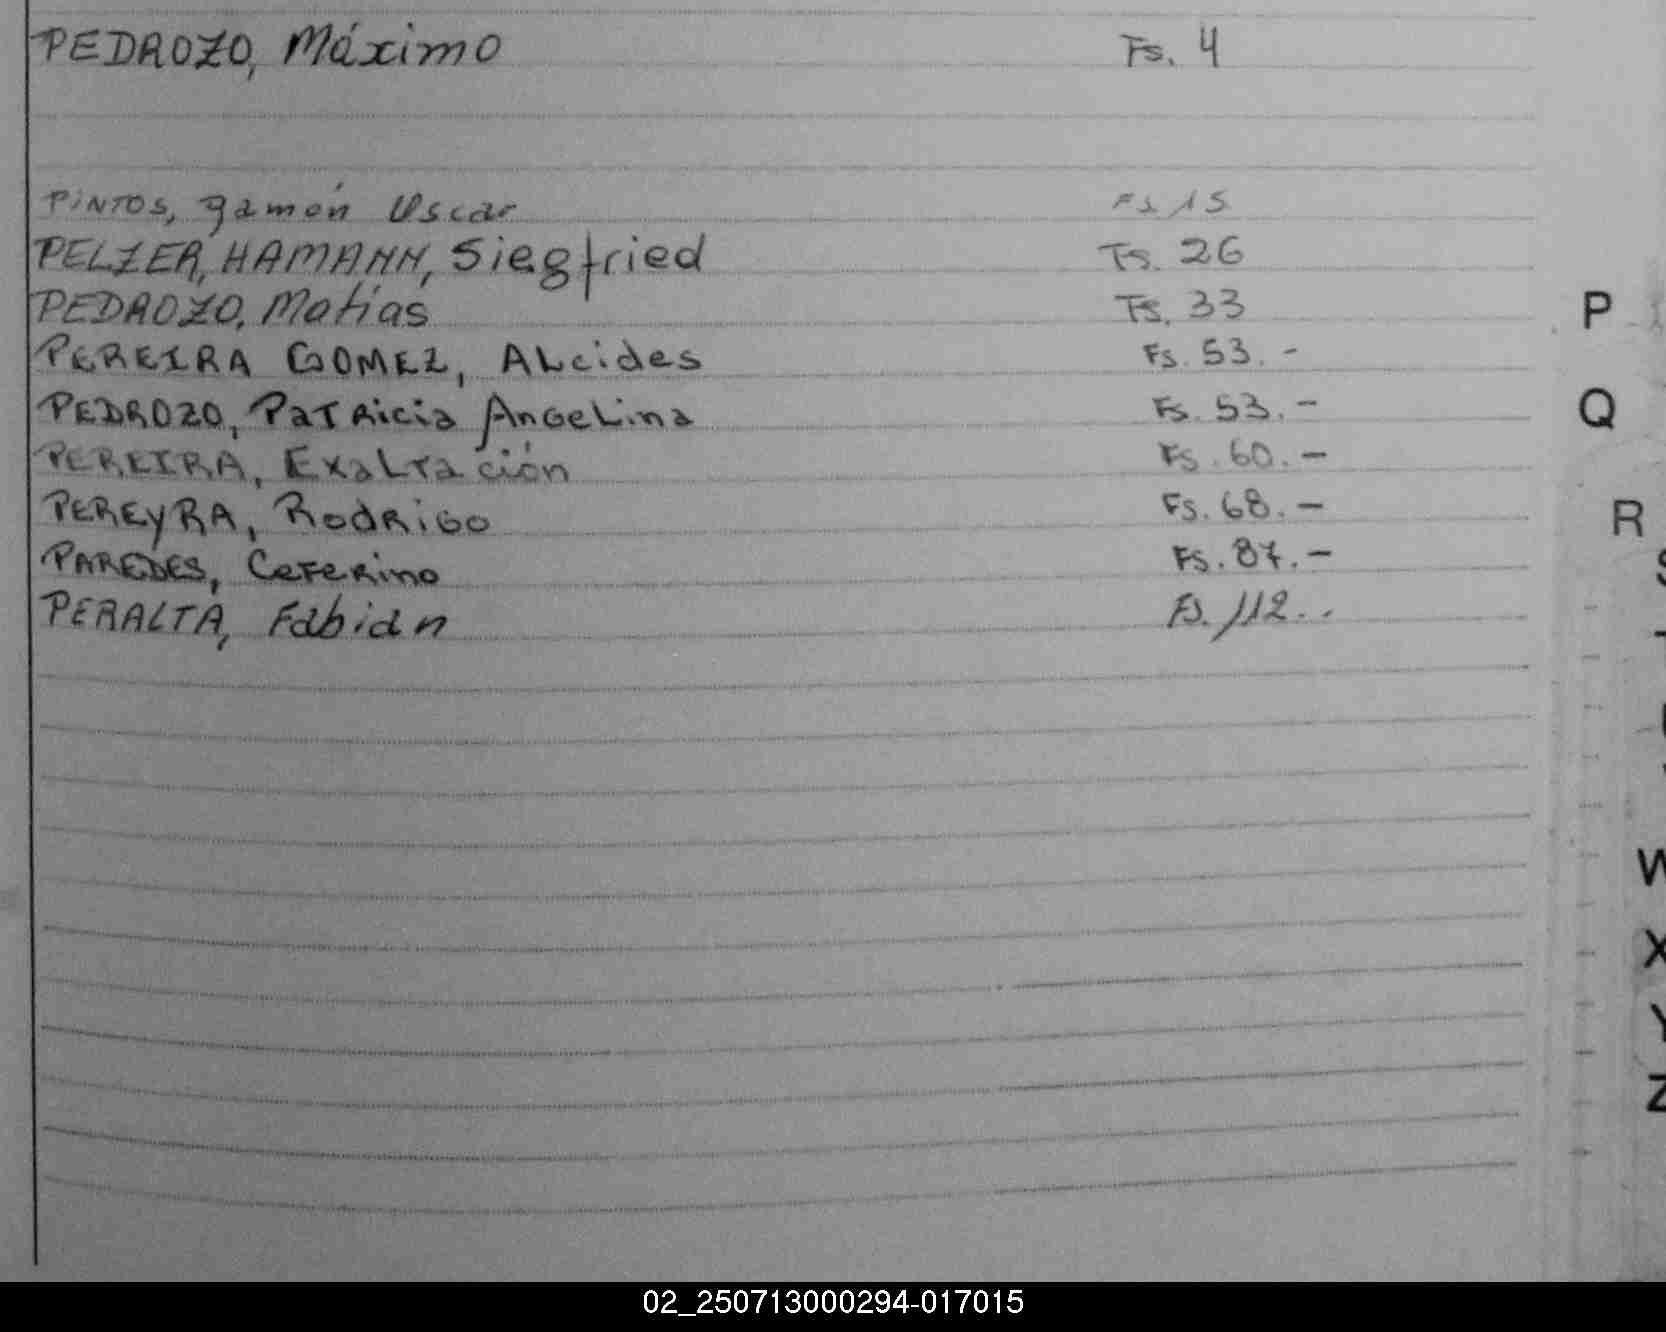 PEDROZO, Máximo Fs. 4
PINTOS, Ramón Oscar Fs 15
PELZER, HAMANN, Siegfried Fs. 26
PEDROZO, Matías Fs. 33
PEREIRA GOMEZ, ALcides Fs. 53.-
PEDROZO, PaTRicia AnGeLina Fs. 53.-
PEREIRA, ExaLTación Fs. 60.-
PEREYRA, RodRiGo Fs. 68.-
PAREDES, CeFeRino Fs. 87.-
PERALTA, Fabian Fs. 112..
P
Q
R
W
X
Y
Z
02_250713000294-017015